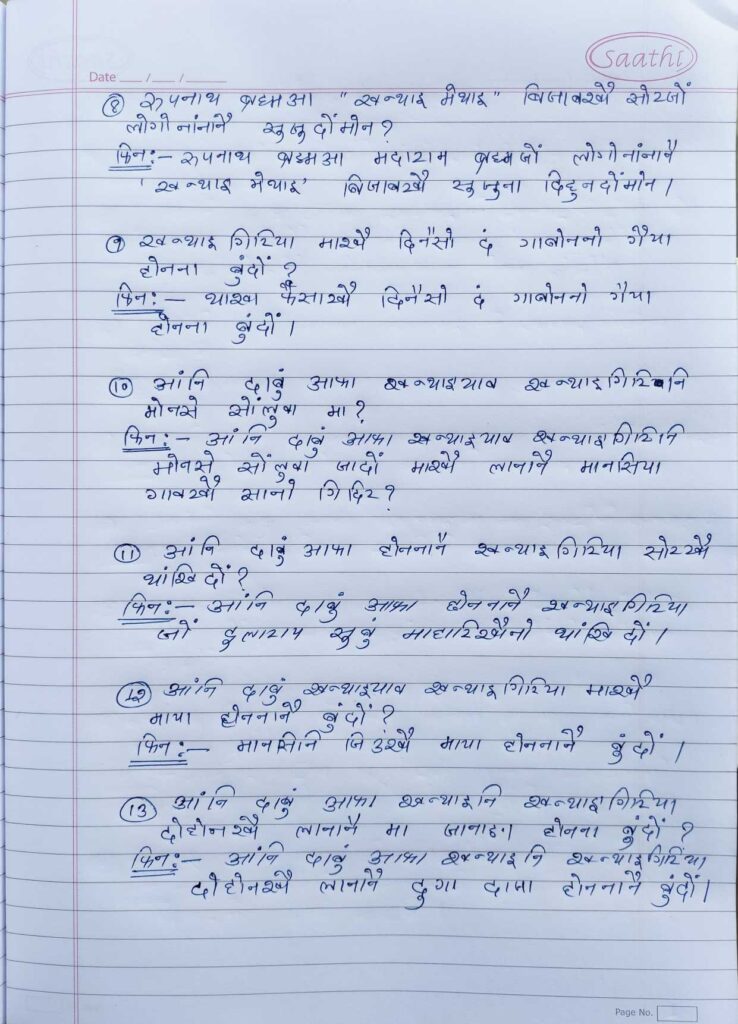 Saathi
Date __ / __ / ____
⑧ रुपनाथ ब्रह्मआ "खन्थाइ मेथाइ" बिजाबखौ सोरजों
लोगोनांनानै सुजुदोंमोन?
फिन:- रुपनाथ ब्रह्मआ मदाराम ब्रह्मजों लोगोनांनानै
'खन्थाइ मेथाइ' बिजाबखौ सुजुना दिहुनदोंमोन।
⑨ खन्थाइगिरिया माखौ दिनैसो दं गाबोननो गैया
होनना बुंदों?
फिन:- थाखा फैसाखौ दिनैसो दं गाबोननो गैया
होनना बुंदों।
⑩ आंनि दाबुं आफा खन्थाइयाव खन्थाइगिरिनि
मोनसे सोंलुवा मा?
फिन:- आंनि दाबुं आफा खन्थाइयाव खन्थाइगिरिनि
मोनसे सोंलुवा जादों माखौ लानानै मानसिया
गावखौ सानो गिदिर?
⑪ आंनि दाबुं आफा होननानै खन्थाइगिरिया सोरखौ
थांखिदों?
फिन:- आंनि दाबुं आफा होननानै खन्थाइगिरिया
जों दुलाराय सुबुं माहारिखौनो थांखिदों।
⑫ आंनि दाबुं खन्थाइयाव खन्थाइगिरिया माखौ
माया होननानै बुंदों?
फिन:- मानसिनि जिउखौ माया होननानै बुंदों।
⑬ आंनि दाबुं आफा खन्थाइनि खन्थाइगिरिया
दोहोनखौ लानानै मा जानाइ। होनना बुंदों?
फिन:- आंनि दाबुं आफा खन्थाइनि खन्थाइगिरिया
दोहोनखौ लानानै दुगा दाजा होननानै बुंदों।
Page No.